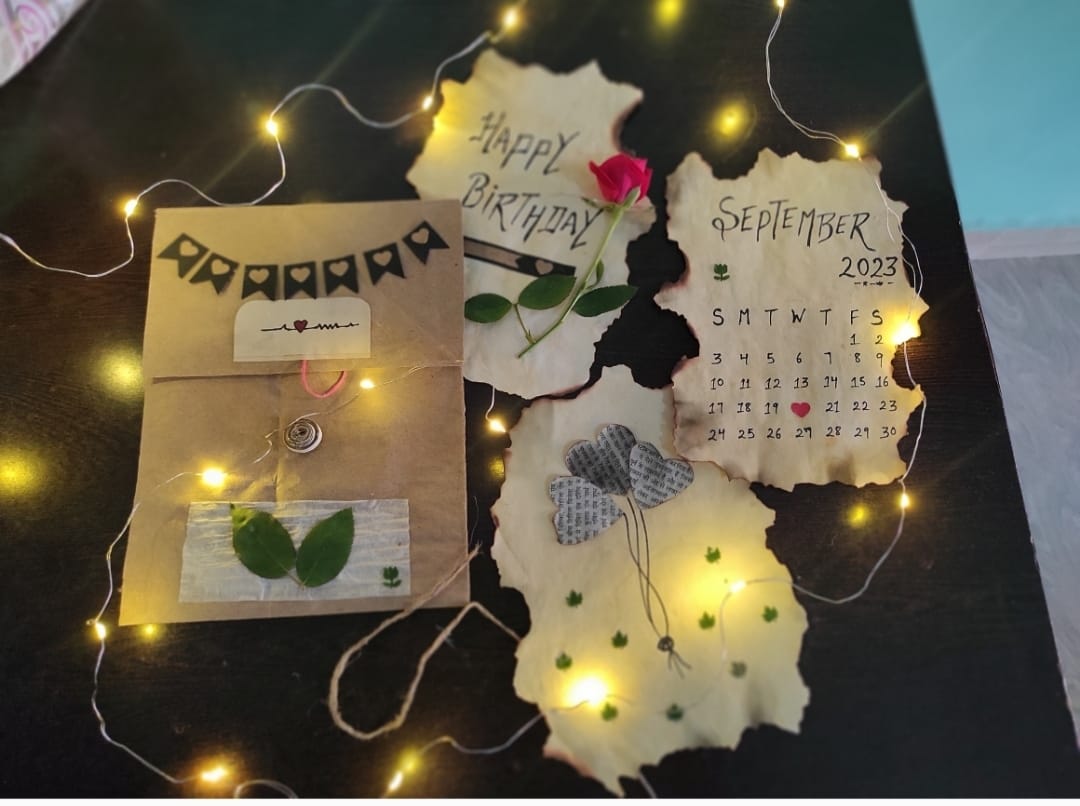 HAPPY
BIRTHDAY
SEPTEMBER
2023
S M T W T F S
1 2
3 4 5 6 7 8 9
10 11 12 13 14 15 16
17 18 19 21 22 23
24 25 26 27 28 29 30